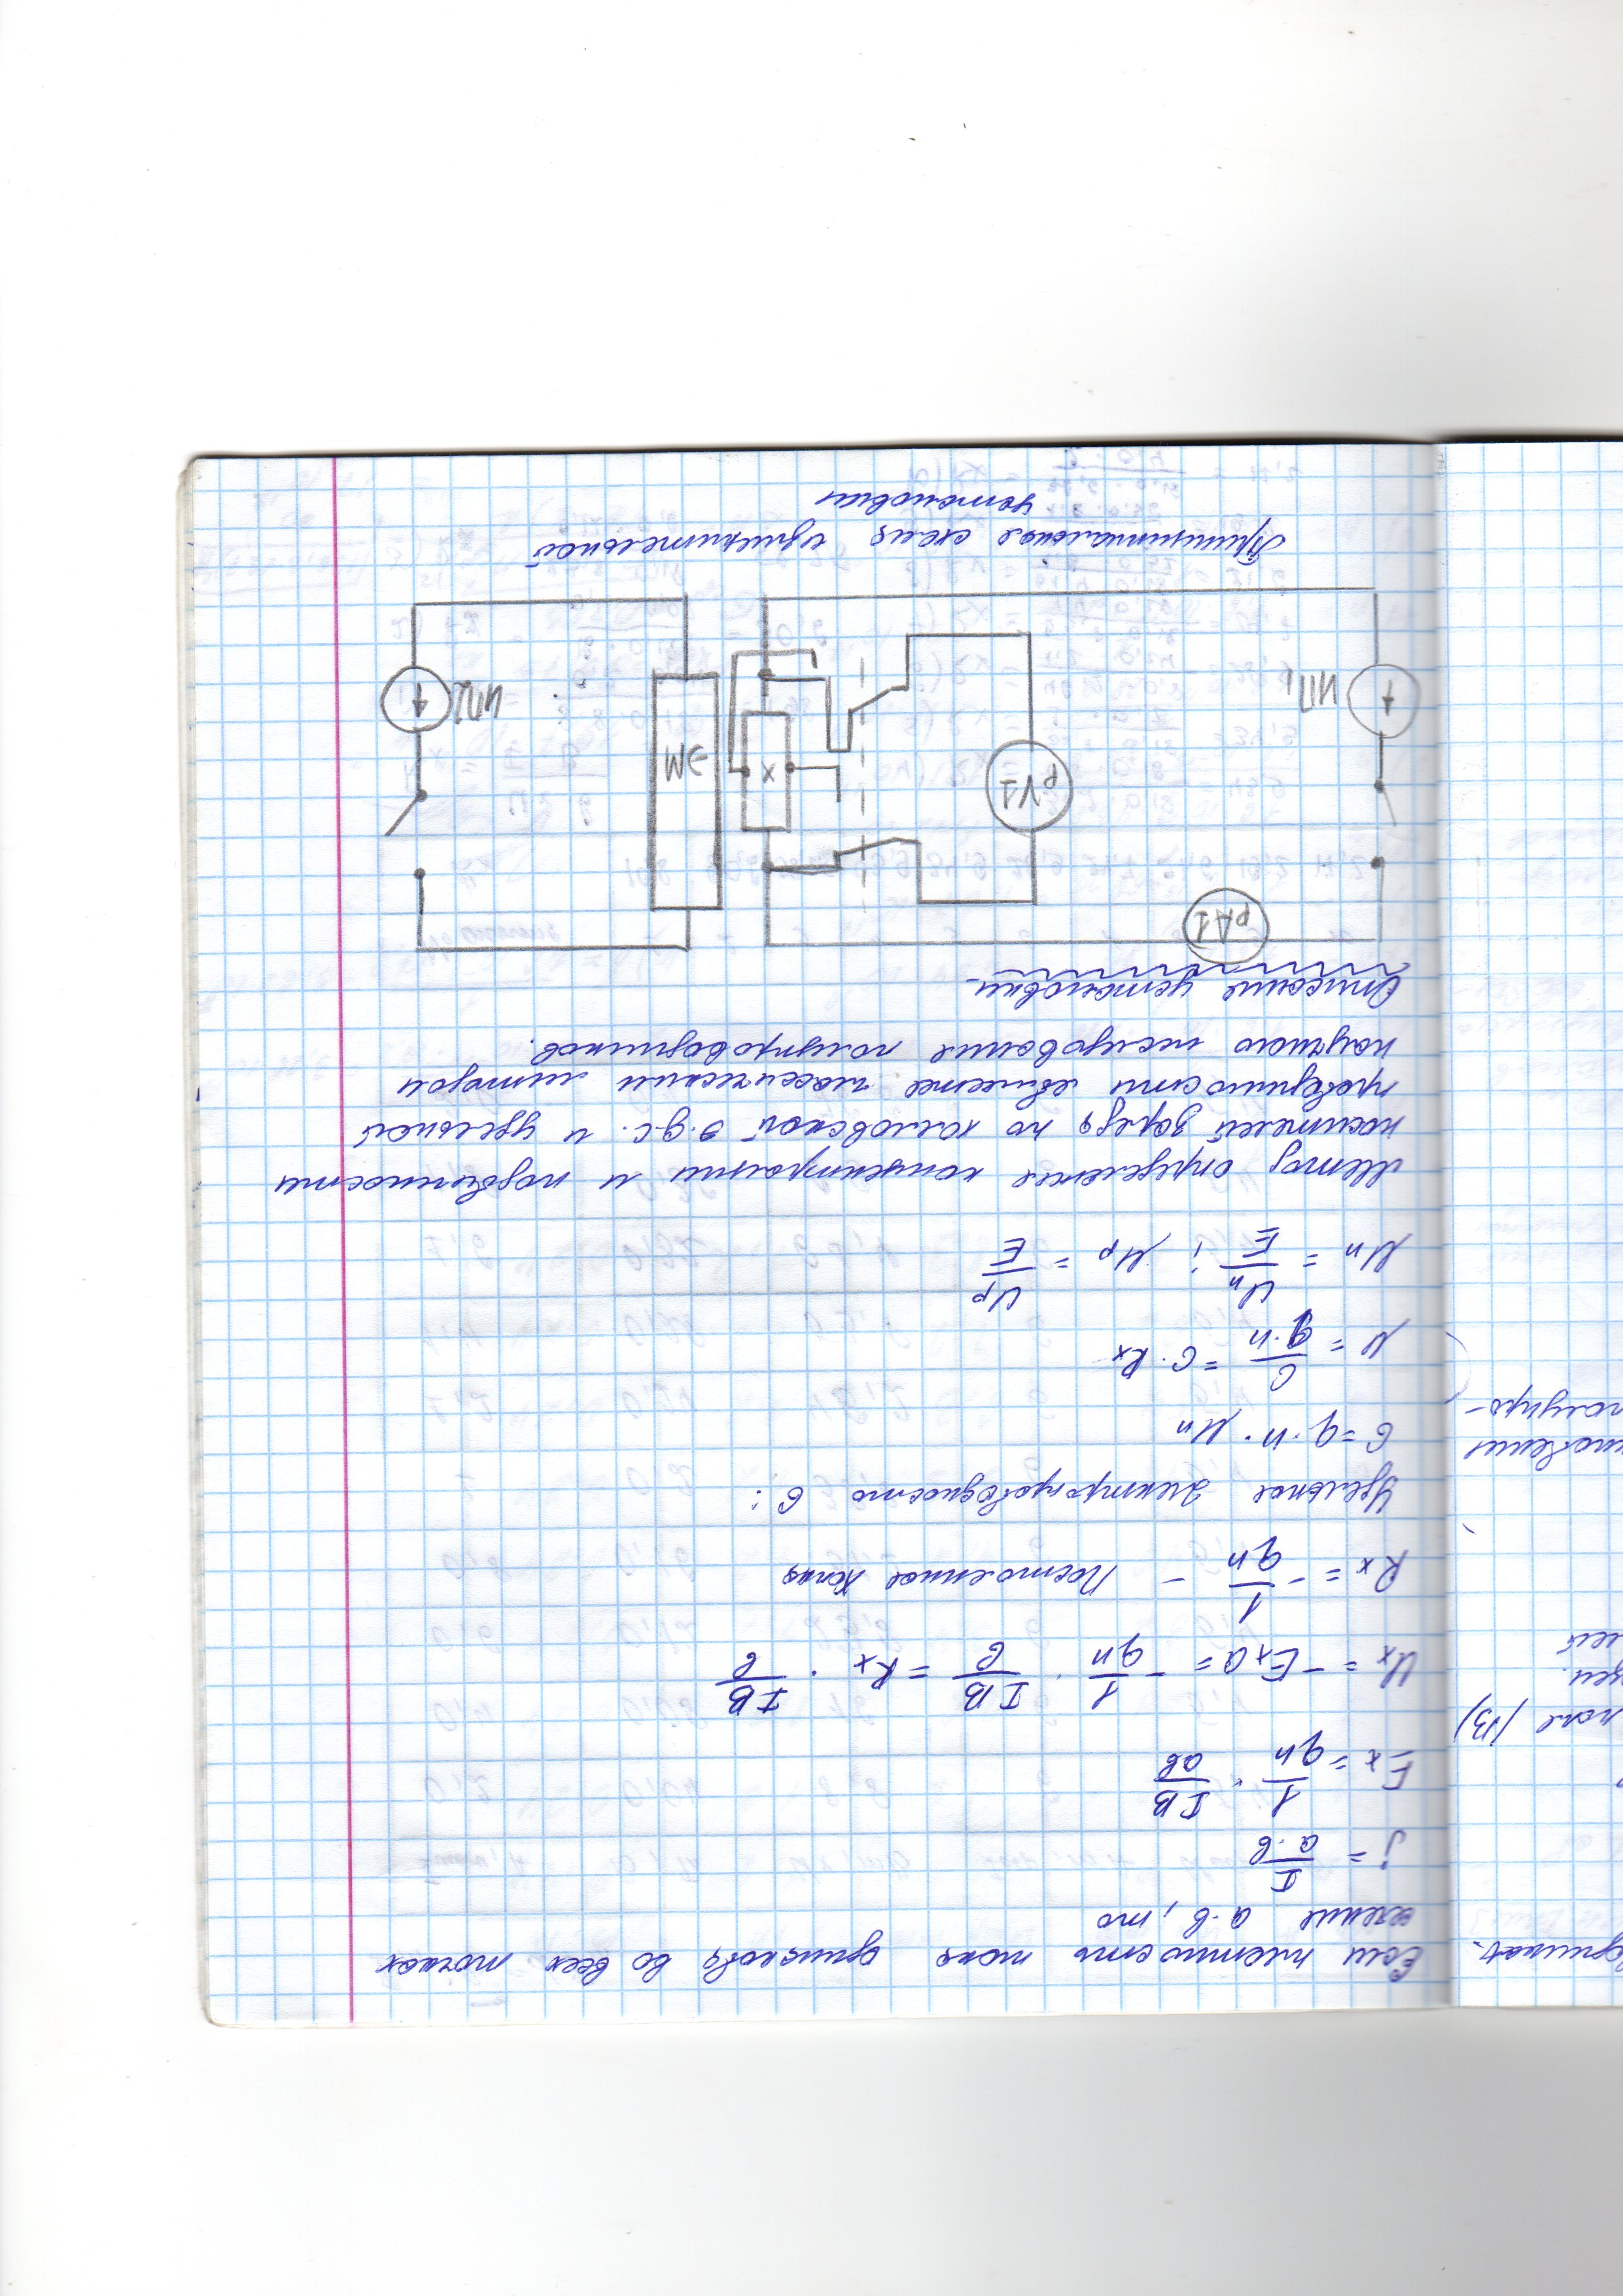 одникав-
Если плотность тока одинакова во всех точках
сечение а·в, то
j = I / а·в
Eх = 1/qn · IB/ав
поля (В)
Uх = -Eх а = - 1/qn · IB/в = Rх · IB/в
лей
Rх = - 1/qn - Постоянное Холла
Удельное электропроводность б:
б = q·n·μn
кновении
полупро-
μ = б/q·n = б·Rх
μn = Un/E ; μp = Up/E
Метод определения концентрации и подвижности
носителей заряда по холловской э.д.с. и удельной
проводимости является классическим методом
научного исследования полупроводников.
Описание установки
pA1
pV1
х
ЭМ
ИП1
ИП2
Принципиальная схема измерительной
установки